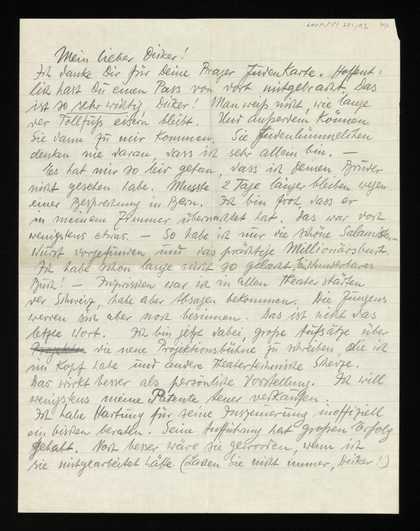 Mein lieber Dicker!
Ich danke Dir für Deine Prager Judenkarte. Hoffent-
lich hast Du einen Pass von dort mitgebracht. Das
ist so sehr wichtig, Dicker! Man weiß nicht, wie lange
der eisern bleibt. Und außerdem können
Sie dann zu mir kommen. Sie
denken nie daran, dass ich sehr allein bin. —
Es hat mir so leid getan, dass ich Deinen Bruder
nicht gesehen habe. Musste 2 Tage länger bleiben wegen
einer Besprechung in Bern. Ich bin froh, dass er
in meinem Zimmer übernachtet hat. Das war doch
wenigstens etwas. — So habe ich nur die schöne Salami-
wurst vorgefunden, und das prächtige Millionärsbuch.
Ich habe schon lange nicht so gelacht. Ein wunderbares
Buch! — Inzwischen war ich in allen Theaterstädten
der Schweiz, habe aber Absagen bekommen. Die Jungens
werden sich aber noch besinnen. Das ist nicht das
letzte Wort. Ich bin jetzt dabei, große Aufsätze über
die neue Projektionsbühne zu schreiben, die ich
im Kopf habe und andere theatertechnische Scherze.
Das wirkt besser als persönliche Vorstellung. Ich will
wenigstens meine Patente teuer verkaufen.
Ich habe Hartung für seine Inszenierung inoffiziell
ein bisschen beraten. Seine Aufführung hat großen Erfolg
gehabt. Noch besser wäre sie geworden, wenn ich
sie mitgearbeitet hätte (Lachen Sie nicht immer, Dicker!)